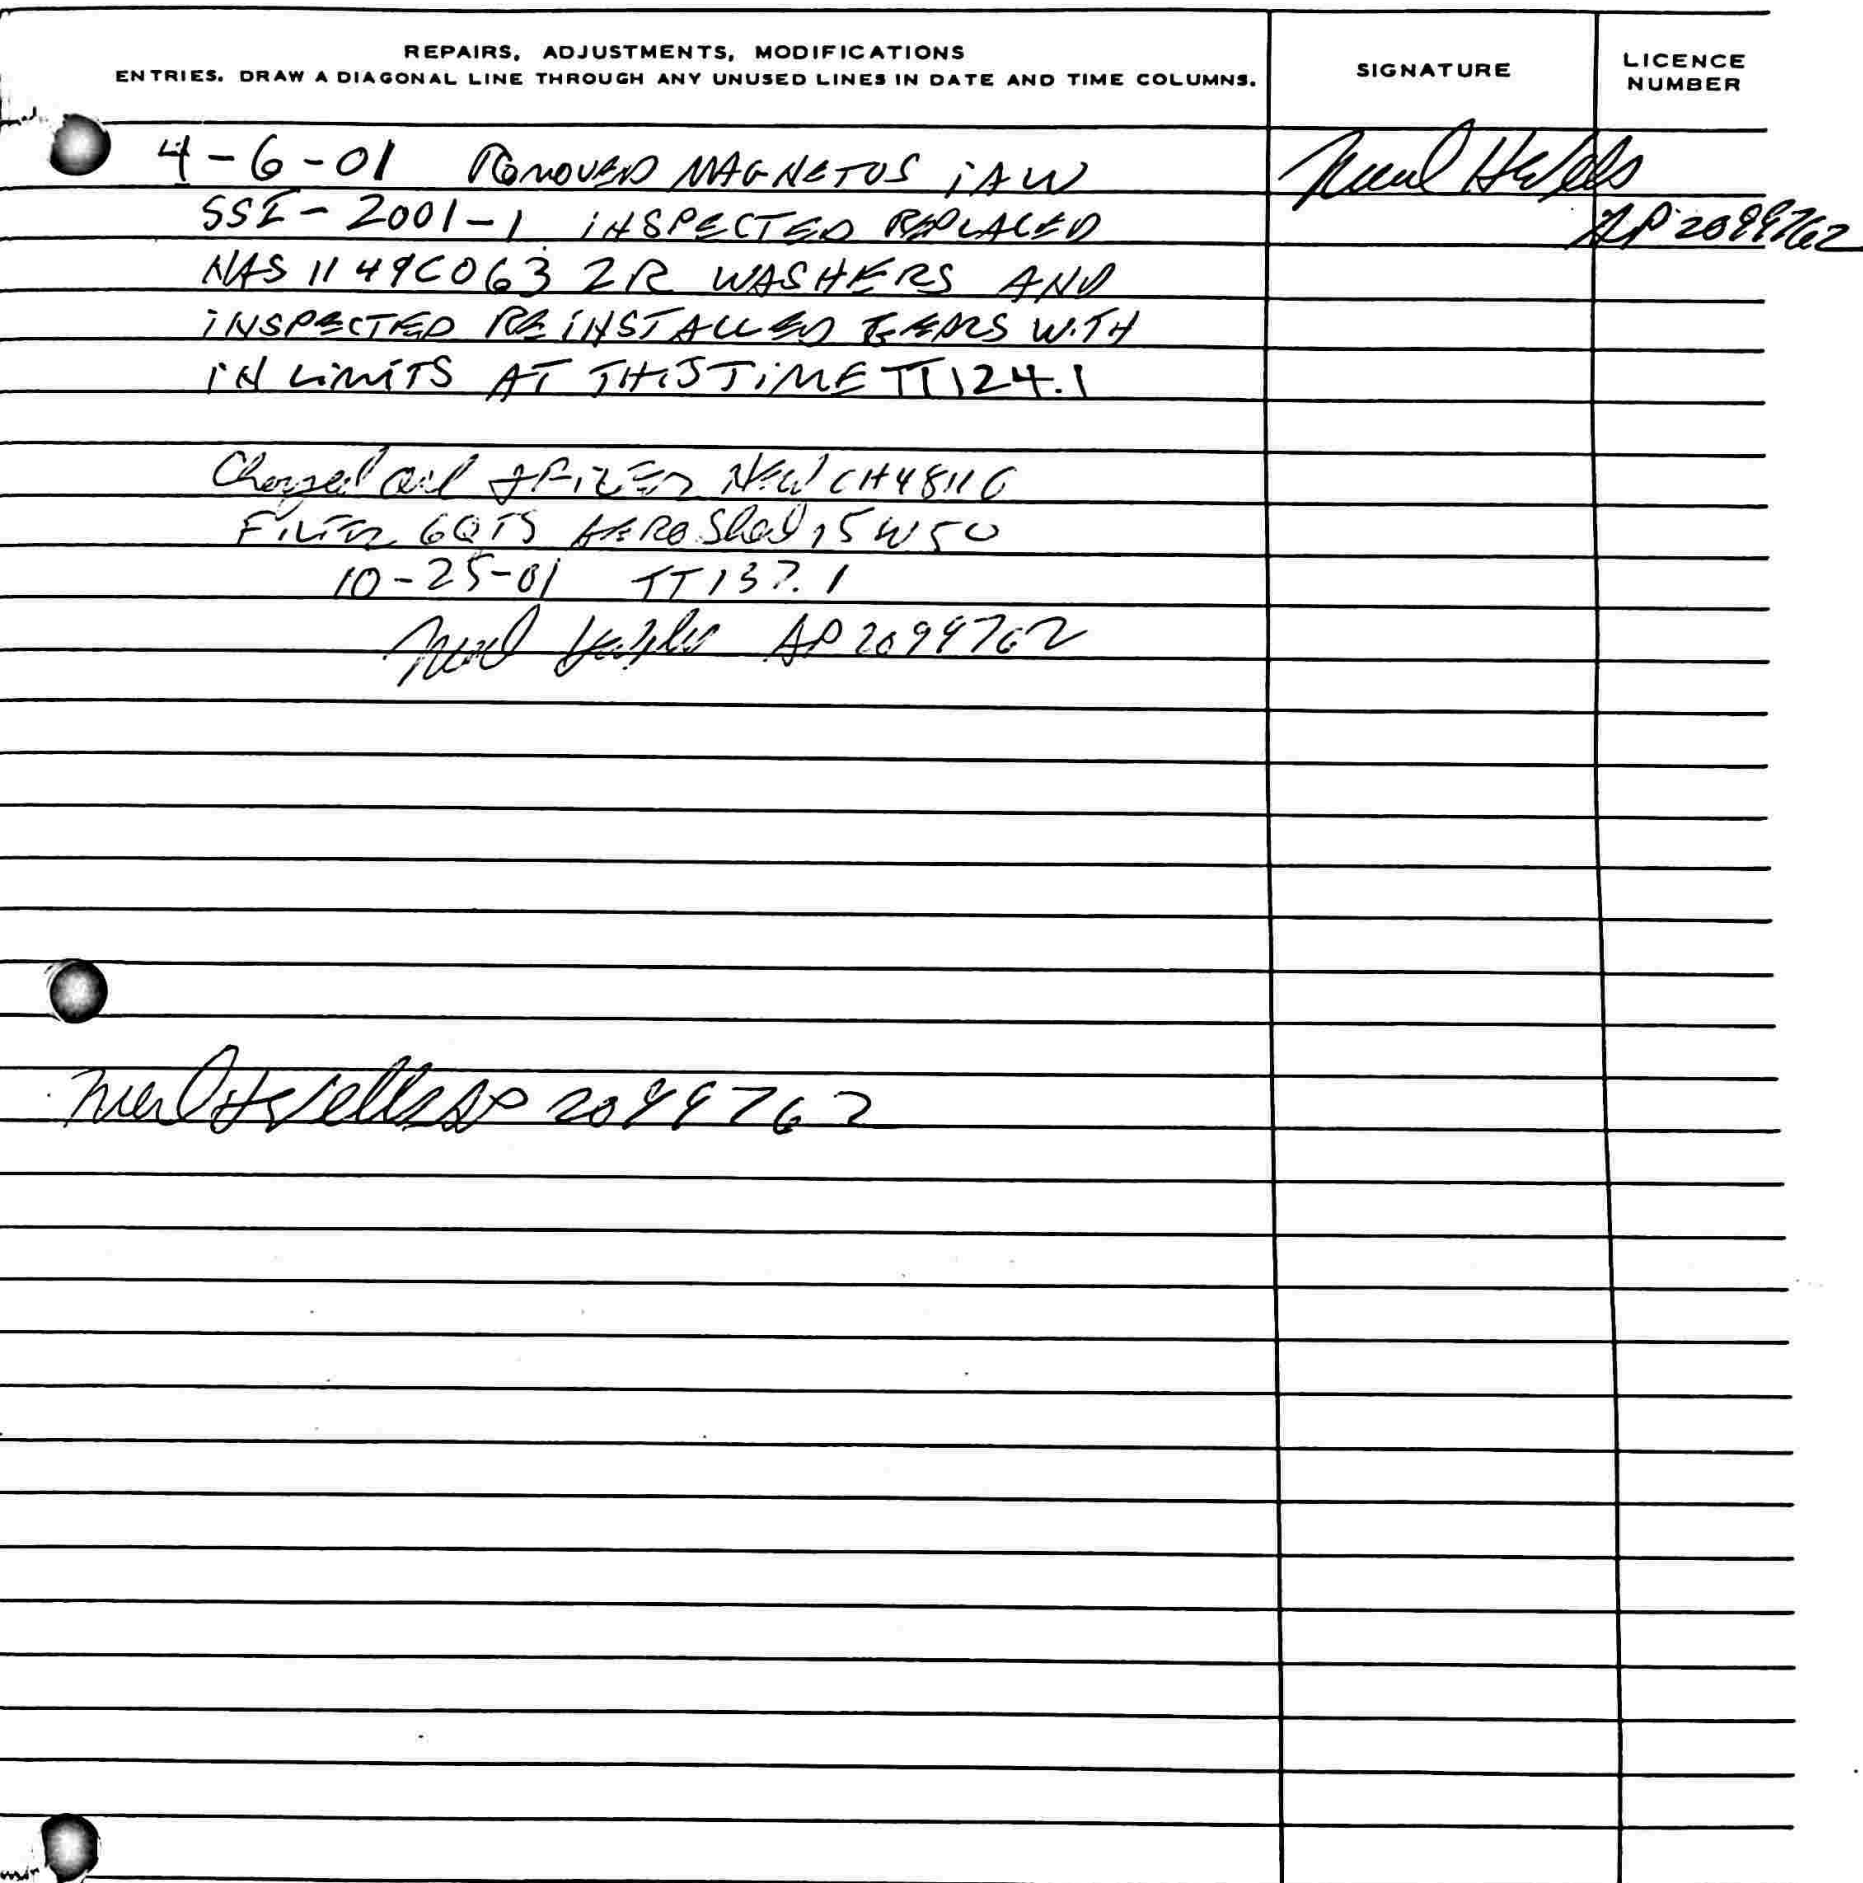 REPAIRS, ADJUSTMENTS, MODIFICATIONS
ENTRIES. DRAW A DIAGONAL LINE THROUGH ANY UNUSED LINES IN DATE AND TIME COLUMNS.
SIGNATURE
LICENCE
NUMBER
4-6-01 REMOVED MAGNETOS iAW
SSI-2001-1 INSPECTED REPLACED
AP 2099762
NAS 1149C063 2R WASHERS AND
INSPECTED REINSTALLED GEARS WITH
IN LIMITS AT THIS TIME TT124.1
Changed oil & FILTER NEW CH48110
FILTER 6QTS AEROShell 15W50
10-25-01 TT137.1
AP 2099762
AP 2099762